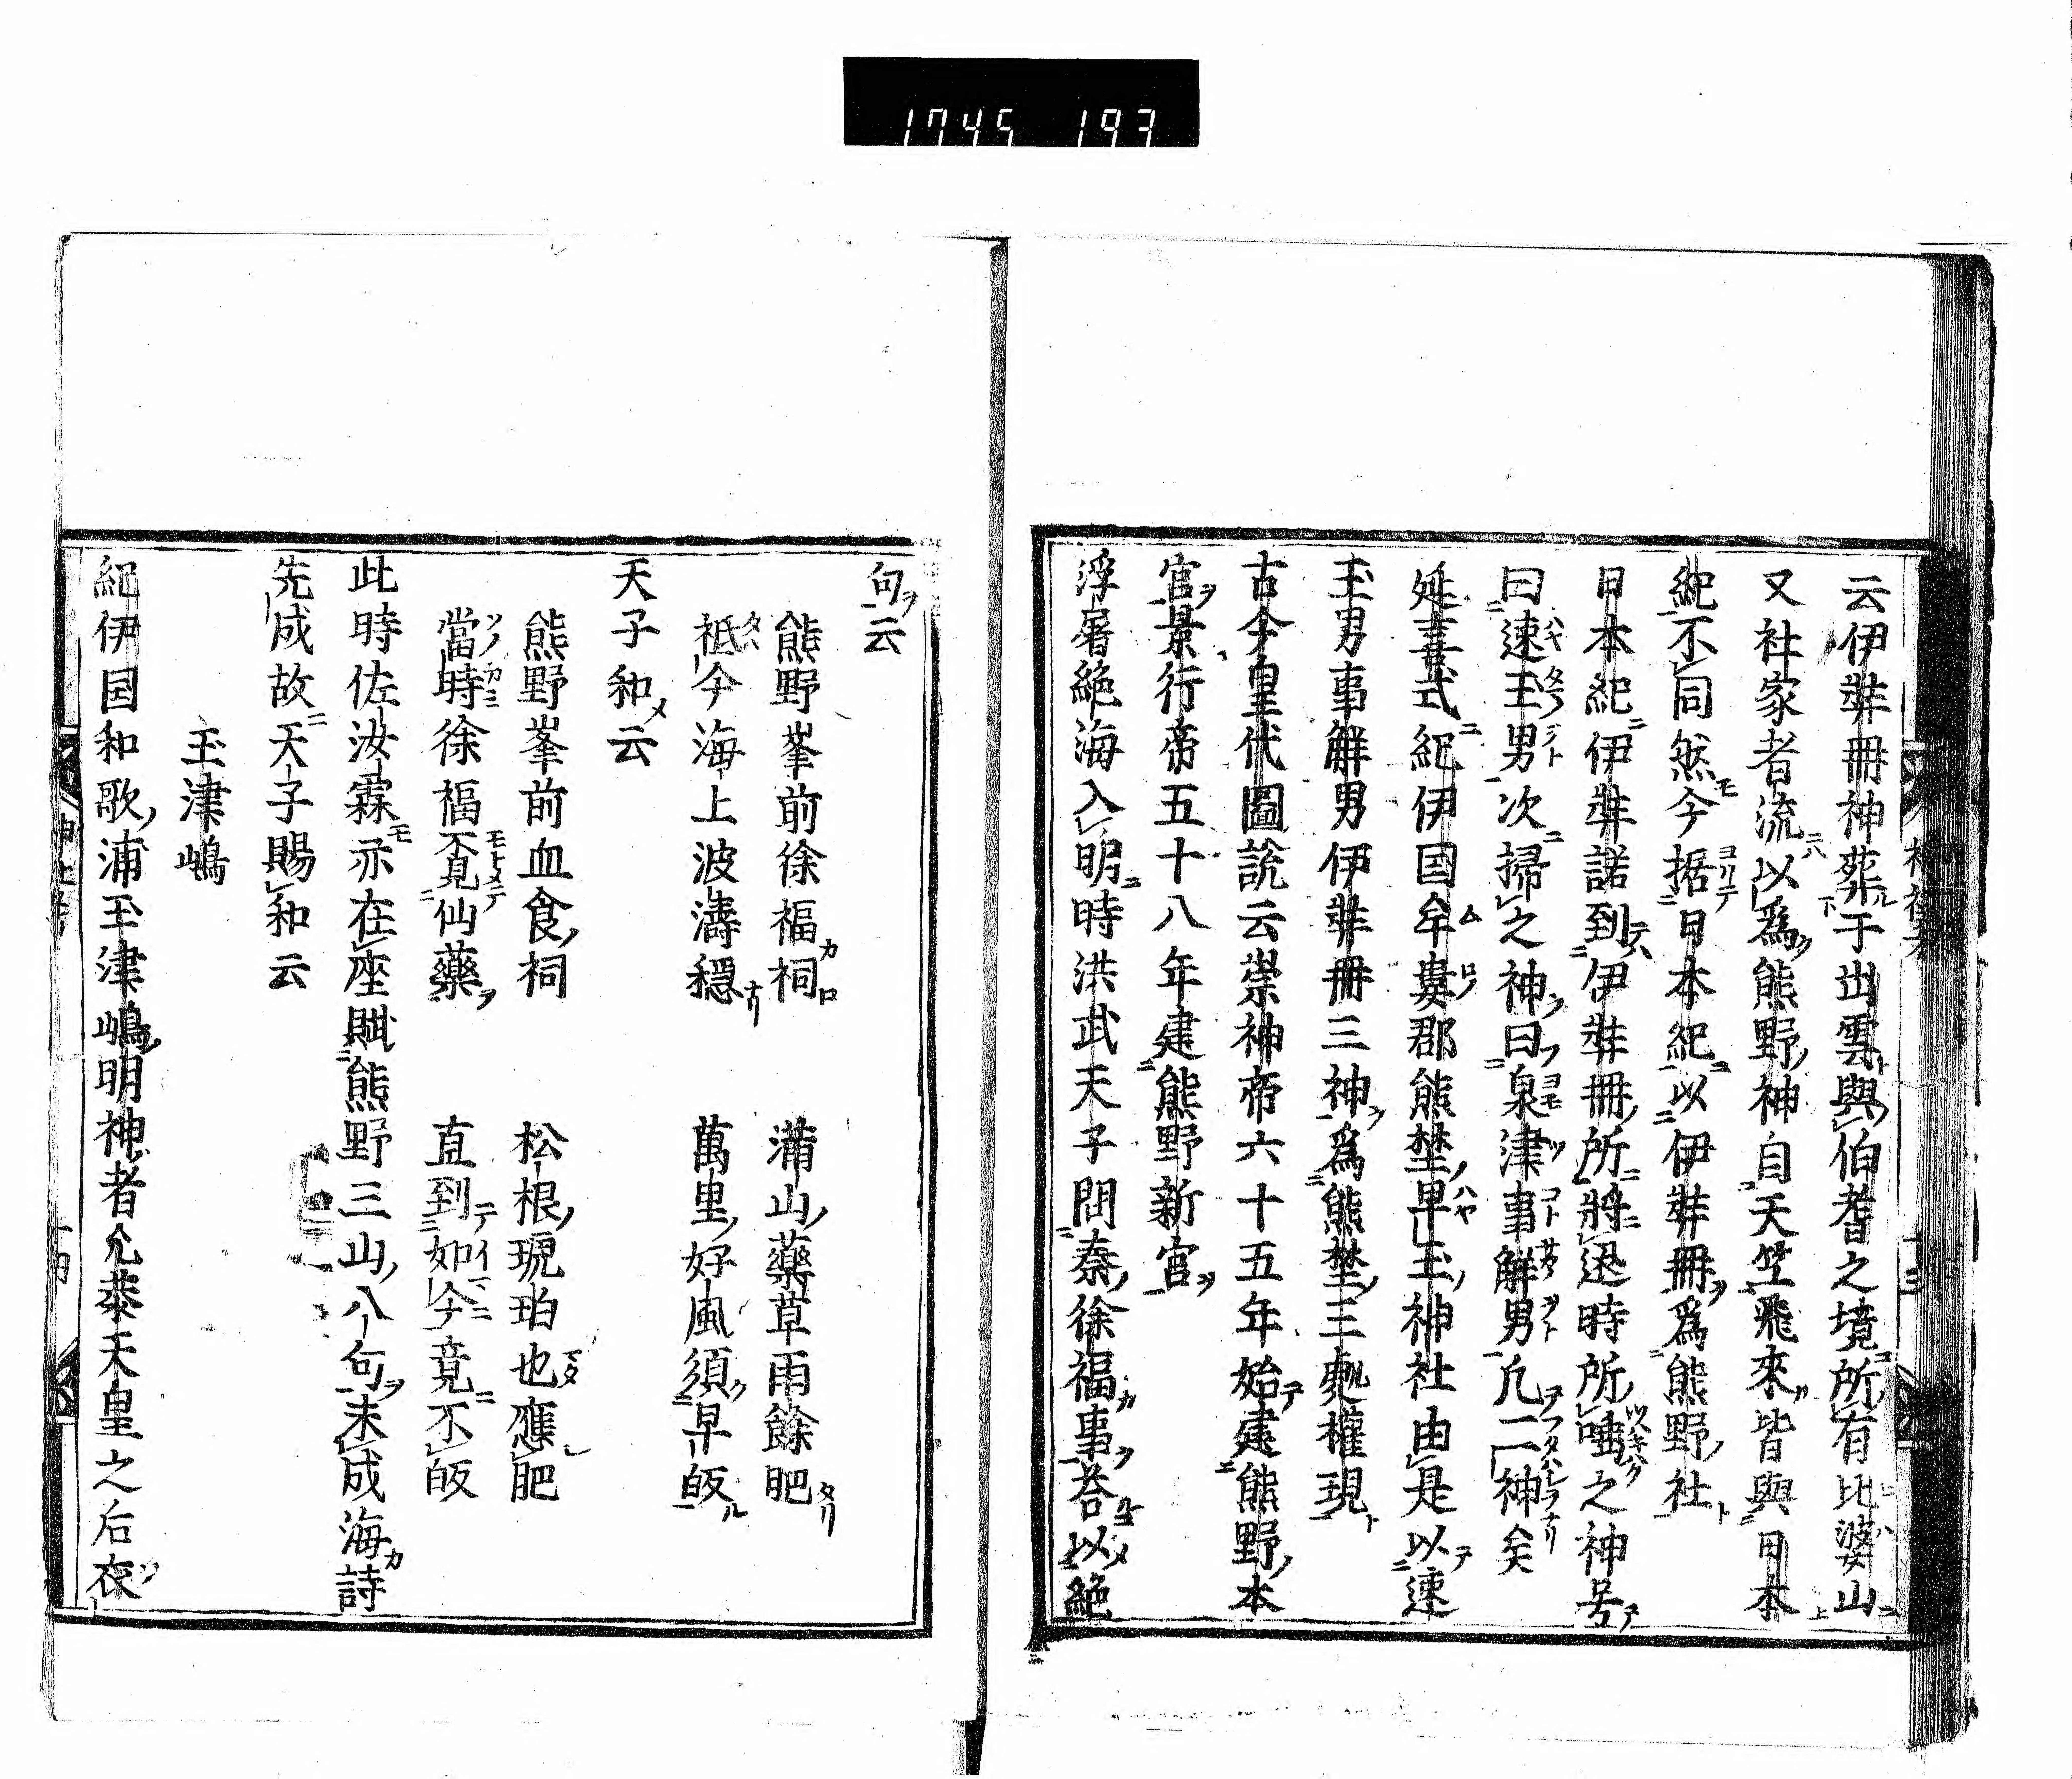 1745 197
云伊弉冊神葬于出雲與伯耆之境所有比婆山
又社家者流以爲熊野神自天竺飛來皆與日本
紀不同然今据日本紀以伊弉冊爲熊野社
日本紀伊弉諾到伊弉冊所將迯時所唾之神号
曰速玉男次掃之神曰泉津事解男凢二神矣
延喜式紀伊国牟婁郡熊埜早玉神社由是以速
玉男事解男伊弉冊三神爲熊埜三處權現
古今皇代圖說云崇神帝六十五年始建熊野本
宮景行帝五十八年建熊野新宮
浮屠絕海入明時洪武天子問秦徐福事荅以絕
句云
熊野峯前徐福祠 滿山藥草雨餘肥
祗今海上波濤穩 萬里好風須早皈
天子和云
熊野峯前血食祠 松根琥珀也應肥
當時徐福覓仙藥 直到如今竟不皈
此時佐汝霖亦在座賦熊野三山八句未成海詩
先成故天子賜和云
玉津嶋
紀伊国和歌浦玉津嶋明神者允恭天皇之后衣